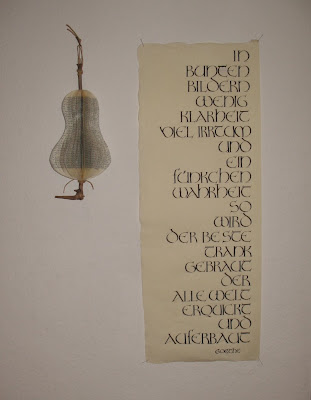 IN
BUNTEN
BILDERN
WENIG
KLARHEIT
VIEL IRRTUM
UND
EIN
FÜNKCHEN
WAHRHEIT
SO
WIRD
DER BESTE
TRANK
GEBRAUT
DER
ALLE WELT
ERQUICKT
UND
AUFERBAUT
GOETHE